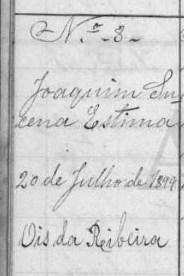 N.º 8-
Joaquim Su-
cena Estima
20 de Julho de 1899
Ois da Ribeira